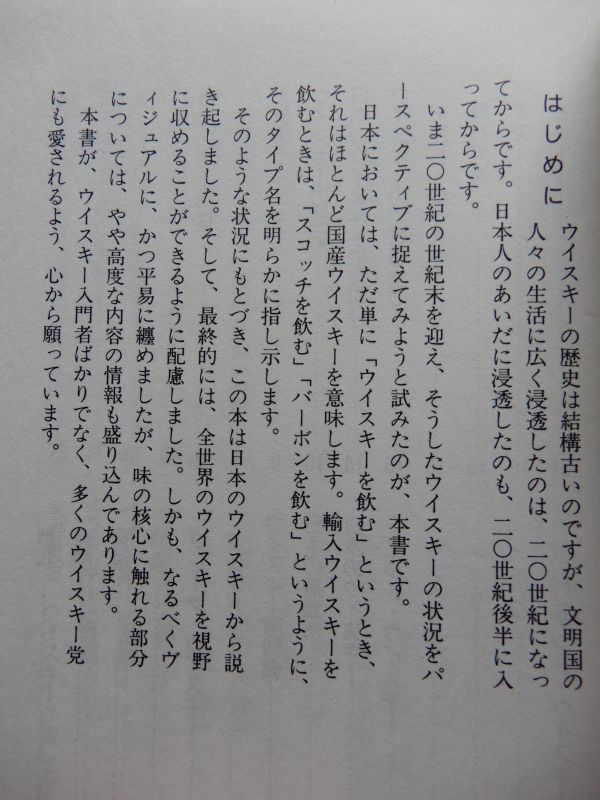 はじめに
ウイスキーの歴史は結構古いのですが、文明国の
人々の生活に広く浸透したのは、二〇世紀になっ
てからです。日本人のあいだに浸透したのも、二〇世紀後半に入
ってからです。
いま二〇世紀の世紀末を迎え、そうしたウイスキーの状況をパ
ースペクティブに捉えてみようと試みたのが、本書です。
日本においては、ただ単に「ウイスキーを飲む」というとき、
それはほとんど国産ウイスキーを意味します。輸入ウイスキーを
飲むときは、「スコッチを飲む」「バーボンを飲む」というように、
そのタイプ名を明らかに指し示します。
そのような状況にもとづき、この本は日本のウイスキーから説
き起しました。そして、最終的には、全世界のウイスキーを視野
に収めることができるように配慮しました。しかも、なるべくヴ
ィジュアルに、かつ平易に纏めましたが、味の核心に触れる部分
については、やや高度な内容の情報も盛り込んであります。
本書が、ウイスキー入門者ばかりでなく、多くのウイスキー党
にも愛されるよう、心から願っています。